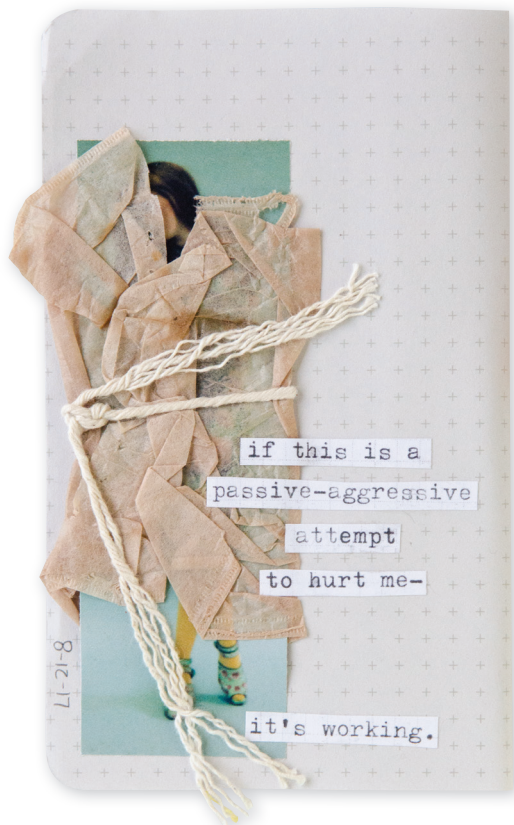 if this is a
passive-aggressive
attempt
to hurt me-
it's working.
8-21-17